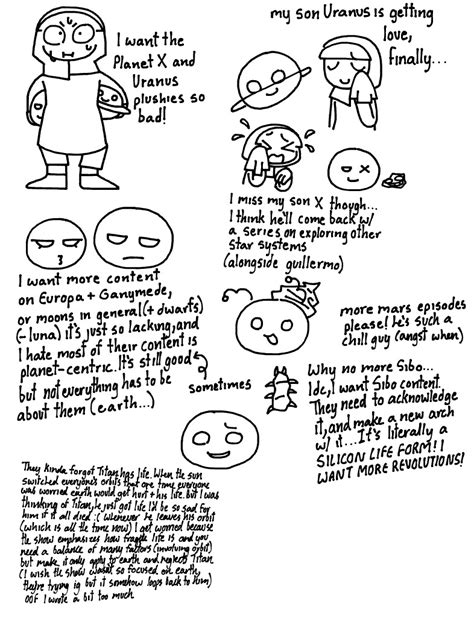 I want the
Planet X and
Uranus
plushies so
bad!
my son Uranus is getting
love,
finally...
I miss my son X though...
I think he'll come back w/
a series on exploring other
star systems
(alongside guillermo)
I want more content
on Europa + Ganymede,
or moons in general (+ dwarfs)
(-luna) it's just so lackung, and
I hate most of their content is
planet-centric. It's still good
but not everything has to be
about them (earth...)
sometimes
more mars episodes
please! he's such a
chill guy (angst when)
Why no more Sibo...
Idc, I want Sibo content.
They need to acknowledge
it, and make a new arch
w/ it... It's literally a
SILICON LIFE FORM! I
WANT MORE REVOLUTIONS!
They kinda forgot Titan has life. When the sun
switched everyone's orbits that one time everyone
was worried earth would get hurt + his life. But I was
thinking of Titan, he just got life I'd be so sad for
him if it all died :( Whenever he leaves his orbit
(which is all the time now) I get worried because
the show emphasizes how fragile life is and you
need a balance of many factors (involving orbit)
but make it only apply to earth and neglects Titan
(I wish the show wasn't so focused on earth,
they're trying ig but it somehow loops back to him)
OOF I wrote a bit too much